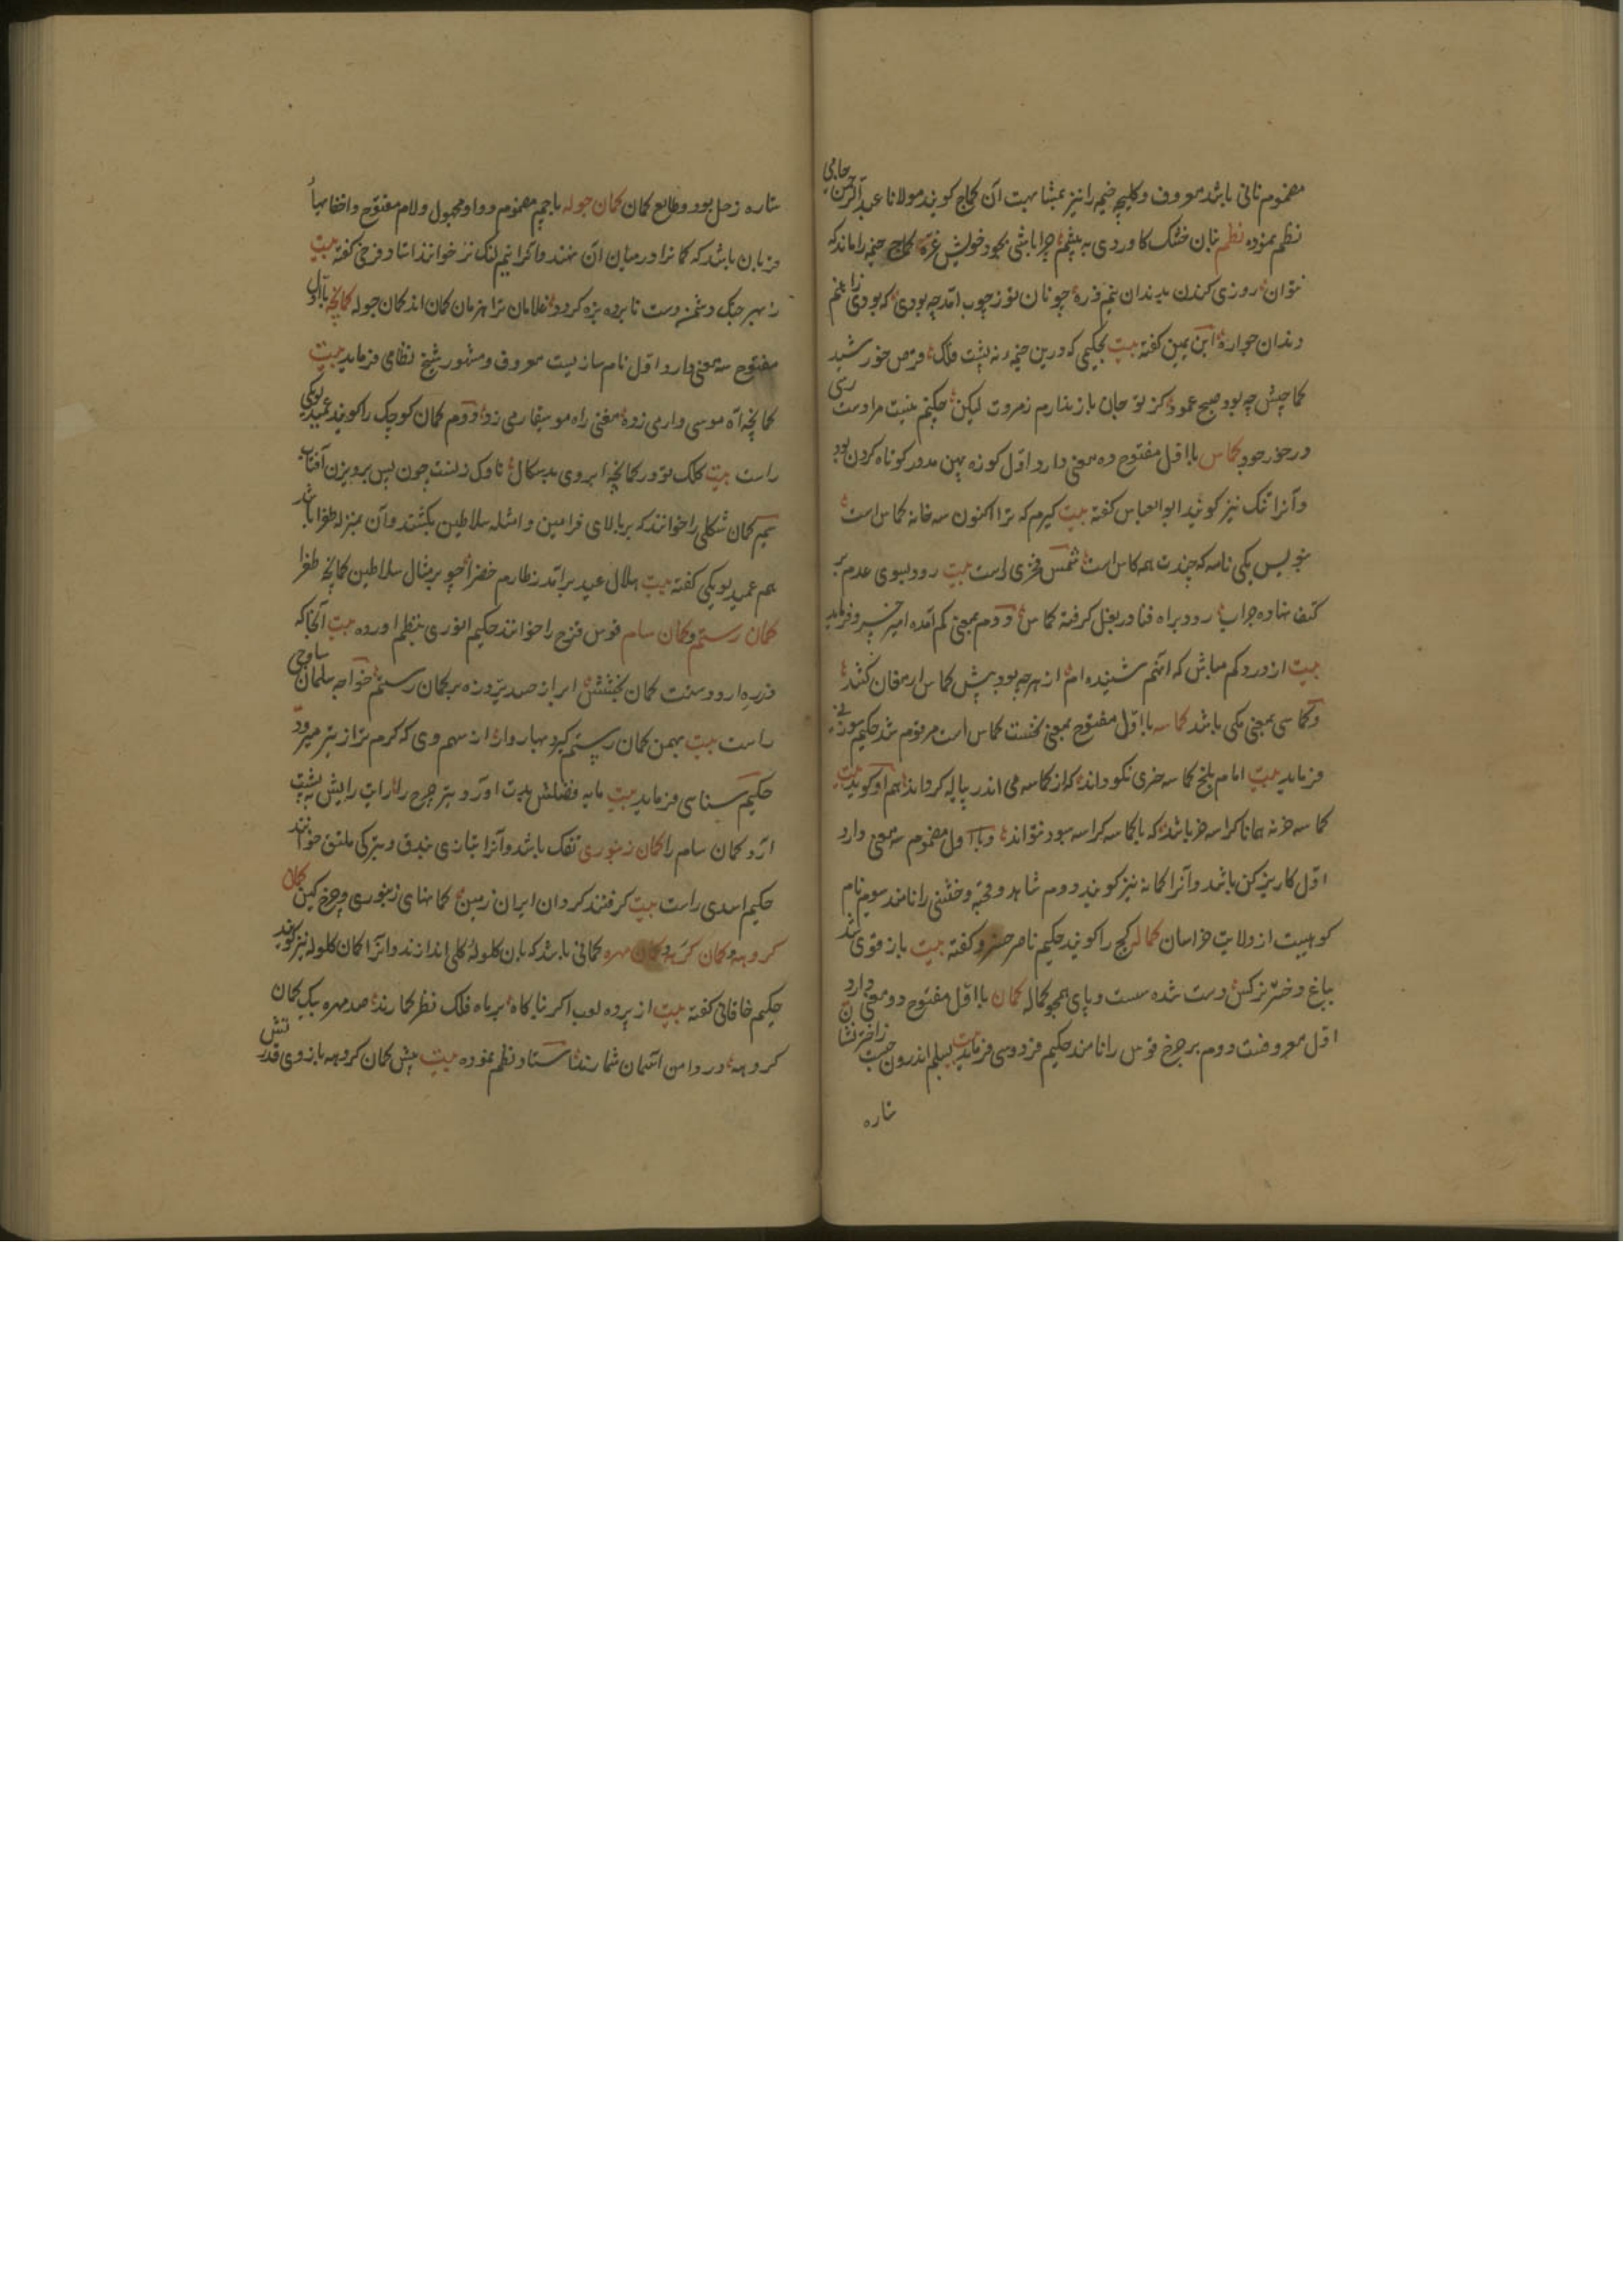 مضموم نانی باشد معروف و کلیچه خیمه را نیز بمشابهت آن کماج کویند مولانا عبد الرحمن جامی
نظم نموده نظم نان خشک کاوردی به پیشم چرا باشی بخود خویش غره کماج خیمه را ماند که
نتوان روزی کندن بدندان نیم ذره چو نان تو ز چوب آمد چه بودی که بودی
دندان چو اره ابن یمین کفته بیت بحکیمی که درین خیمه نه پشت فلک قرص خورشید
کماجش چه بود صبح عمود کز تو جان باز ندارم ز مروت لیکن چکنم نیست مرا دست رسی
درخور جود کماس با اول مفتوح دو معنی دارد اول کوزه پهن مدور کوتاه کردن بود
و آنرا تنک نیز کویند ابو العباس کفته بیت کیرم که ترا اکنون سه خانه کماس است
بنویس یکی نامه که چندت همه کاس است شمس فخری راست بیت رود بسوی عدم بر
کتف نهاده جراب رود براه فنا در بغل کرفته کماس و دوم بمعنی کم آمده امیر خسرو فرماید
بیت از درد کم مباش که آنهم شنیده ام از هرچه بود پیش کماس ارمغان کنند
و کماسی بمعنی کمی باشد کماسه با اول مفتوح بمعنی نخست کماس است مرقوم شد حکیم سوزنی
فرماید بیت امام بلخ کماسه خری نکو داند که از کماسه می اندر پیاله کرداند هم او کوید بیت
کماسه خر نه همانا کراسه خر باشد که با کماسه کراسه سبود نتواند و با اول مضموم سه معنی دارد
اول کاریز کن باشد و آنرا کمانه نیز کویند دوم شاهد و قحبه و خنثی را نامند سوم نام
کوهیست از ولایت خراسان کماله کج را کویند حکیم ناصر خسرو کفته بیت باز قوی شد
بباغ دخترنرکس دست شده سست و پای همچو کماله کمان با اول مفتوح دو معنی دارد
اول معروفست دوم برج قوس را نامند حکیم فردوسی فرماید بیت
تاره
ستاره زحل بود و طالع کمان کمان جوله با جیم مضموم و واو مجهول و لام مفتوح و اخفا بها
قربان باشد که کمانرا در میان آن نهند و آنرا نیم لنک نیز خوانند استاد فرخی کفته بیت
ز بهر جنک دشمن دست تا برده بزه کردد غلامان ترا هزمان کمان اندر کمان جوله کمانچه با اول
مفتوح سه معنی دارد اول نام سازیست معروف و مشهور شیخ نظامی فرماید بیت
کمانچه آه موسی وار می زد مغنی راه موسیقار می زد و دوم کمان کوچک را کویند عمید لوبکی
راست بیت کلک تو در کمانچه ابروی بدسکال ناوک زنست چون پس پرویزن آفتاب
سیم کمان شکلی را خوانند که بر بالای فرامین و امثله سلاطین بکشند و آن بمنزله طغرا باشد
هم عمید لوبکی کفته بیت هلال عید برآمد ز طارم خضرا چو بر مثال سلاطین کمانچه طغرا
کمان رستم و کمان سام قوس قزح را خوانند حکیم انوری بنظم اورده بیت آنجا که
در بخشش ابر از صد پرّد زه بر کمان رستم خواجه سلمان ساوجی
راست بیت بهمن کمان رستم کیرد بهار وار از سهم وی که کرم تر از تیر میرود
حکیم سنایی فرماید بیت مایه فضلش بدست اورد و تیر چرخ را رای رایش به پشت
ارد کمان سام را کمان زنبوری تفک باشد و آنرا بتازی بندق و بترکی ملتق خوانند
حکیم اسدی راست بیت کرفتند کردان ایران زمین کمانهای زنبوری و چرخ کین کمان
کروهه و کمان کرهه و کمان مهره کمانی باشد که بان کلوله کلی اندازند و انرا کمان کلوله نیز کویند
حکیم خاقانی کفته بیت از پرده لعب اکر بناکاه بر ماه فلک نظر کمارند صد مهره بیک کمان
کروهه در دامن آسمان شمارند استاد نظم نموده بیت پیش کمان کروهه بازوی قدرتش